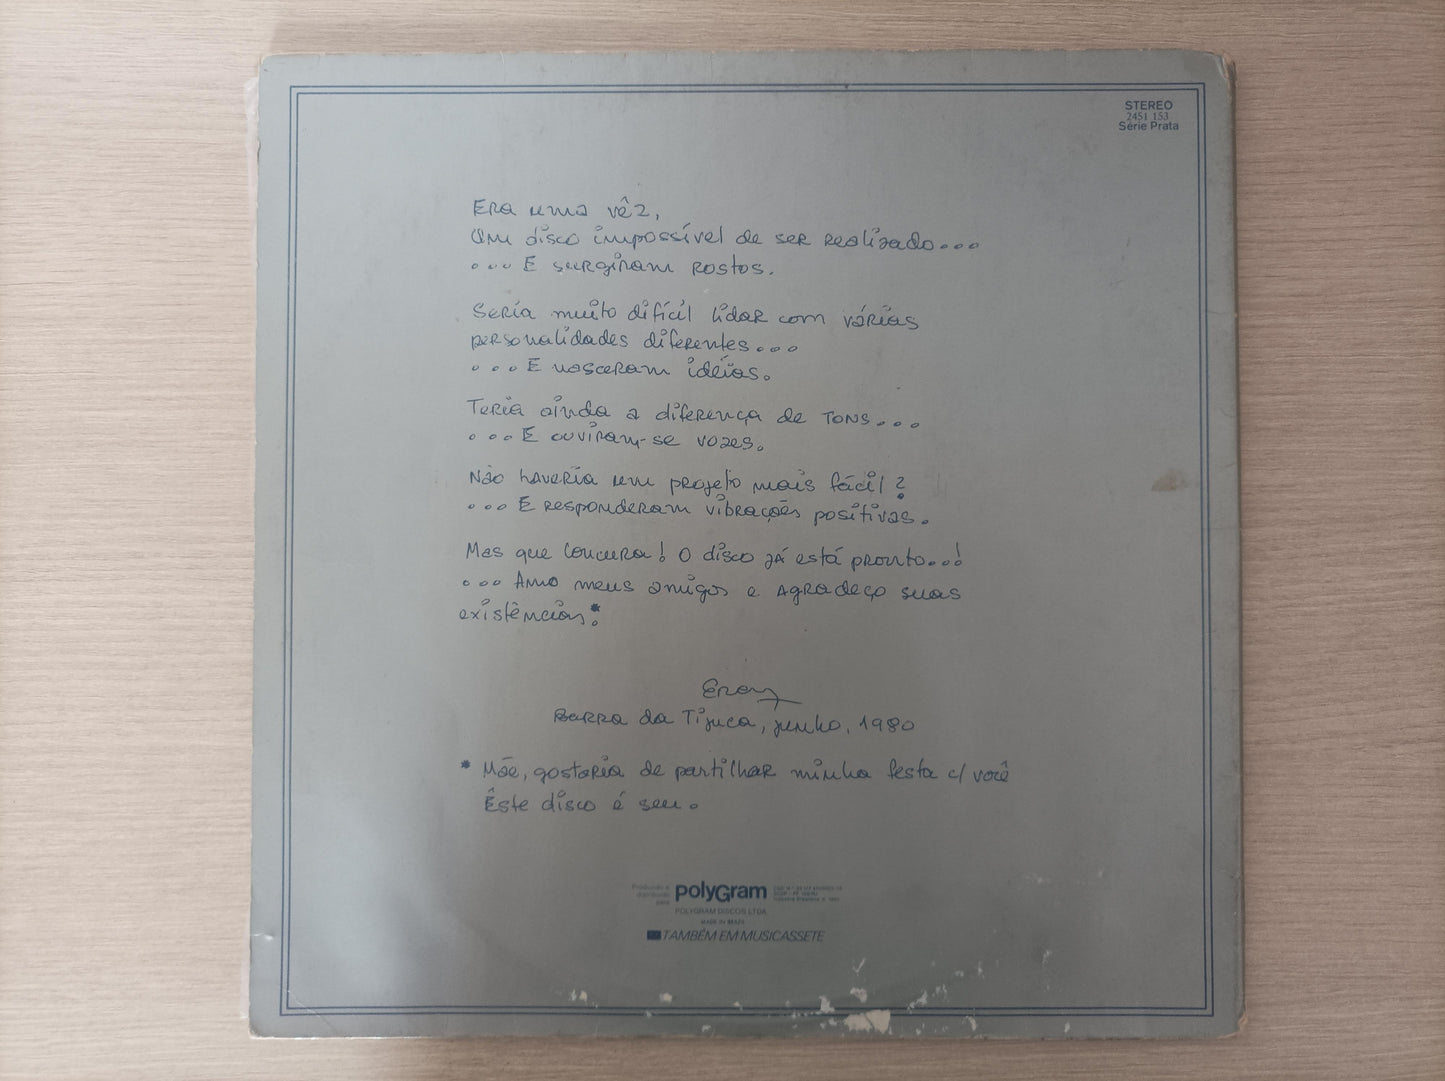 STEREO
2451 153
Série Prata
Era uma vêz,
Um disco impossível de ser realizado...
... E surgiram rostos.
Seria muito difícil lidar com várias
personalidades diferentes...
... E nasceram idéias.
Teria ainda a diferença de TONS...
... E ouviram-se vozes.
Não haveria um projeto mais fácil?
... E responderam vibrações positivas.
Mas que loucura! O disco já está pronto...!
... Amo meus amigos e agradeço suas
existências.*
Barra da Tijuca, junho, 1980
* Mãe, gostaria de partilhar minha festa c/ você
Êste disco é seu.
Produzido e
distribuído
pela
polyGram
POLYGRAM DISCOS LTDA
TAMBÉM EM MUSICASSETE